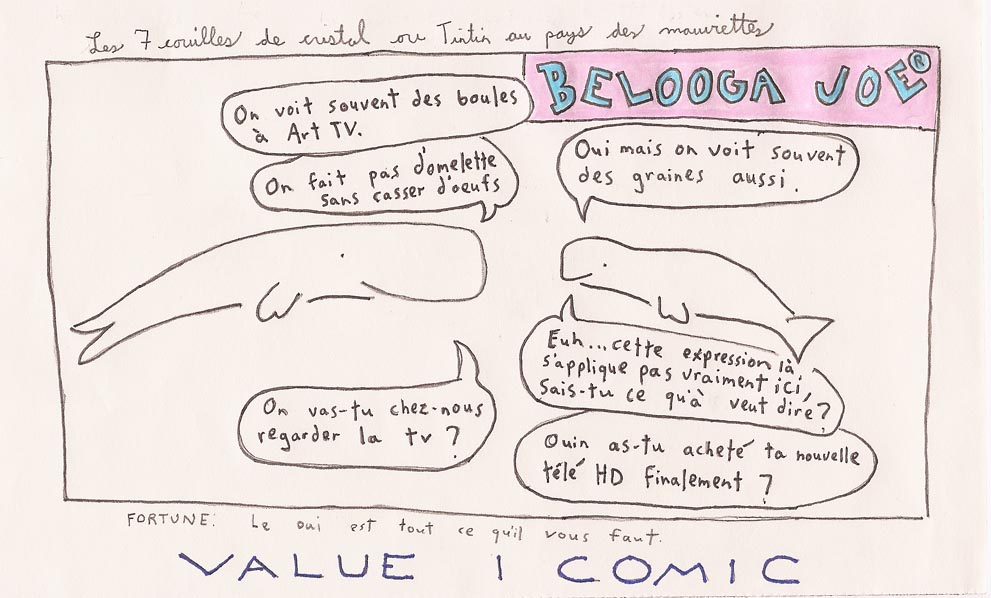 Les 7 couilles de cristal ou Tintin au pays des mauviettes
BELOOGA JOE®
On voit souvent des boules
à Art TV.
Oui mais on voit souvent
des graines aussi.
On fait pas d'omelette
sans casser d'oeufs
Euh...cette expression là
s'applique pas vraiment ici,
Sais-tu ce qu'à veut dire?
On vas-tu chez-nous
regarder la tv ?
Ouin as-tu acheté ta nouvelle
télé HD finalement ?
FORTUNE: Le oui est tout ce qu'il vous faut.
VALUE 1 COMIC